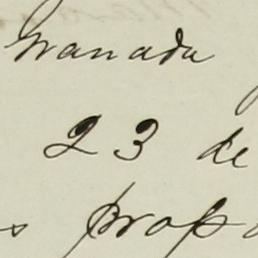 Granada
23 de
s propo